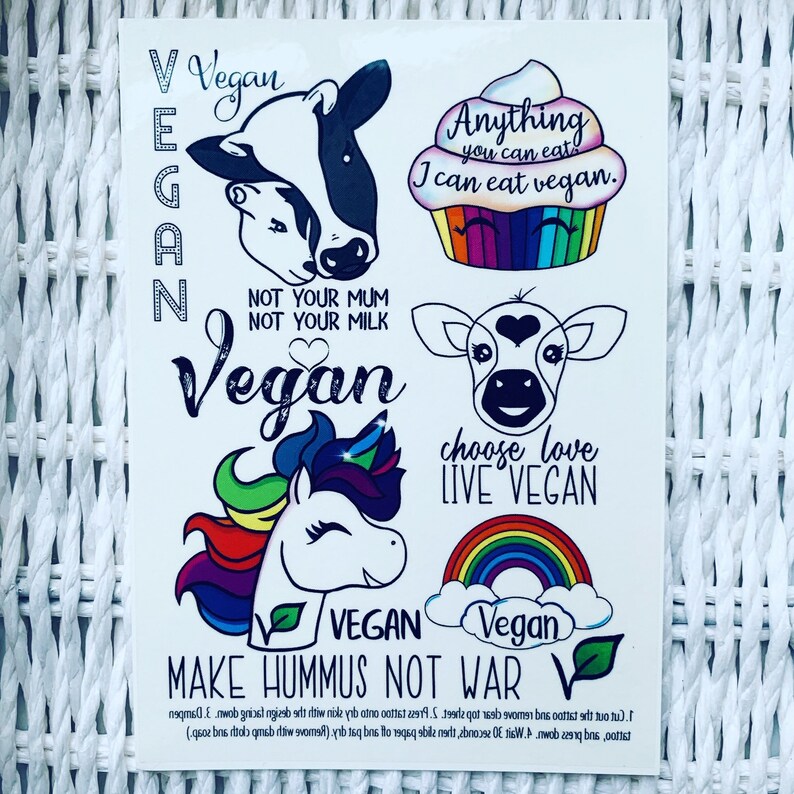 VEGAN
Vegan
Anything
you can eat,
I can eat vegan.
NOT YOUR MUM
NOT YOUR MILK
Vegan
choose love
LIVE VEGAN
VEGAN
Vegan
MAKE HUMMUS NOT WAR
1. Cut out the tattoo and remove clear top sheet. 2. Press tattoo onto dry skin with the design facing down. 3. Dampen
tattoo, and press down. 4. Wait 30 seconds, then slide paper off and pat dry. (Remove with damp cloth and soap.)